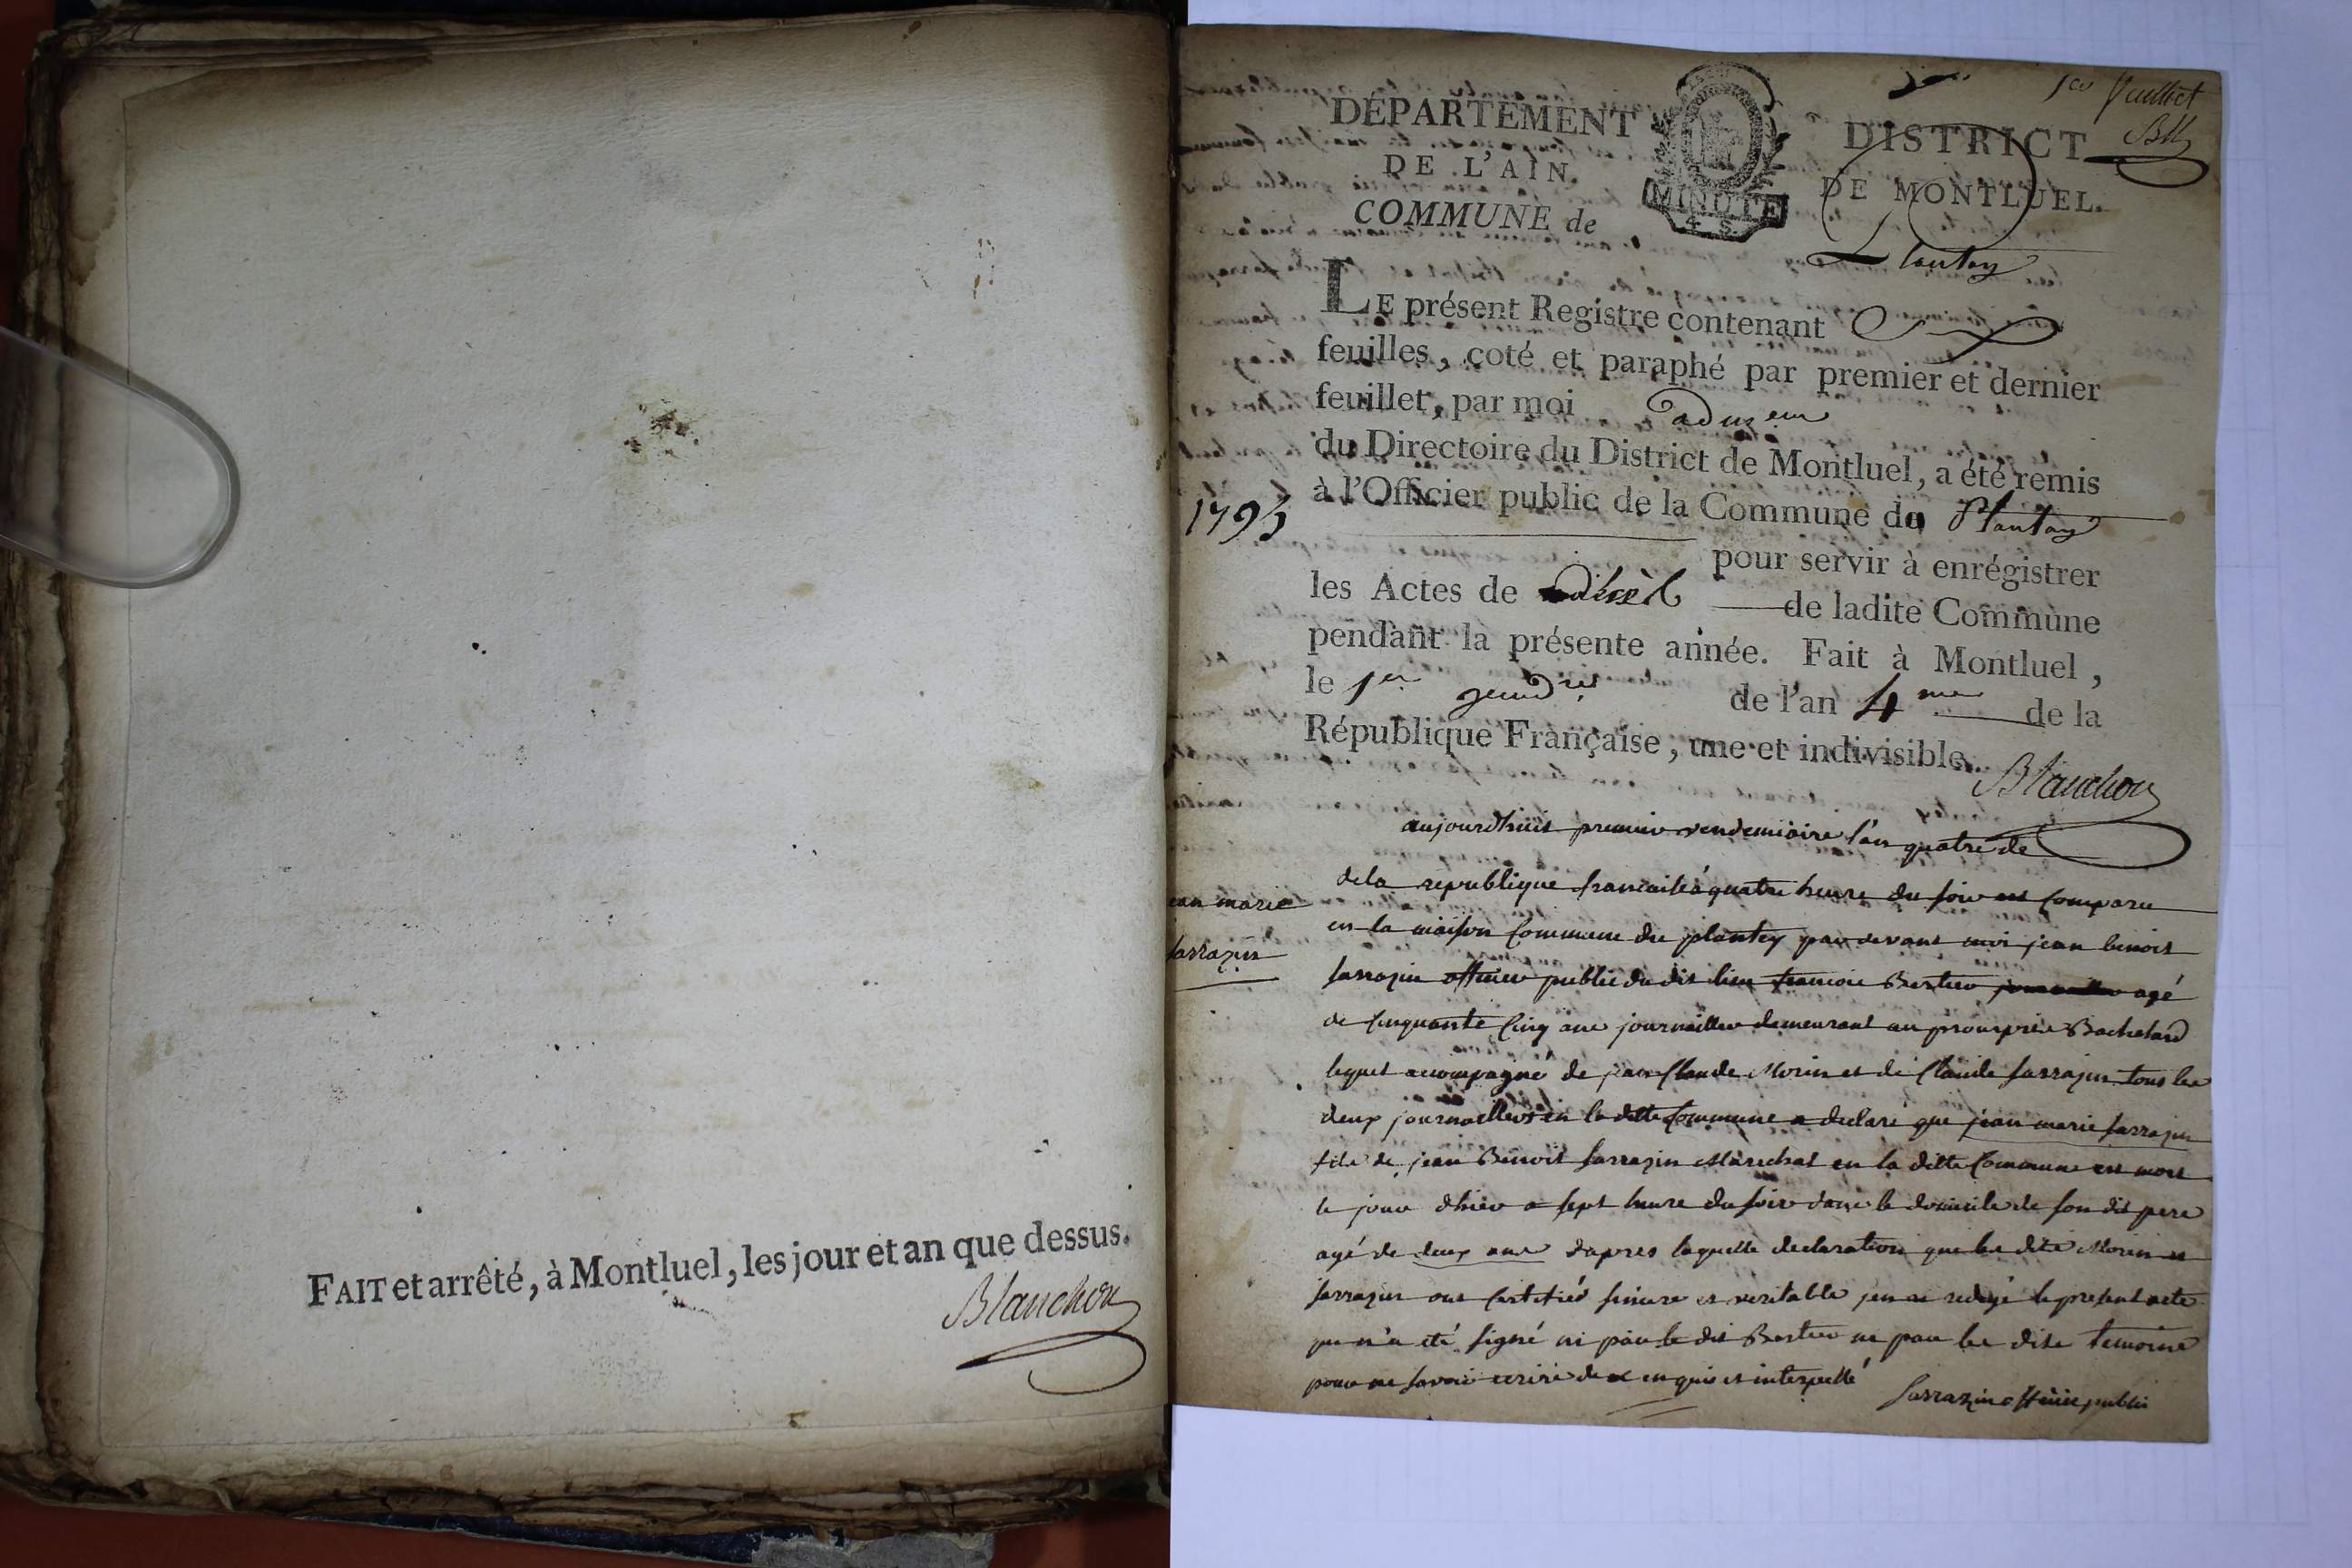 FAIT et arrêté, à Montluel, les jour et an que dessus.
Blanchon
1er feuillet
DÉPARTEMENT
DE L'AIN.
COMMUNE de
MINUTE
4 S.
DISTRICT
DE MONTLUEL.
Plantay
LE présent Registre contenant
feuilles, coté et paraphé par premier et dernier
feuillet, par moi
du Directoire du District de Montluel, a été remis
à l'Officier public de la Commune du Plantay
1795
pour servir à enrégistrer
les Actes de décès de ladite Commune
pendant la présente année. Fait à Montluel,
le 1er de l'an 4me de la
République Française, une et indivisible.
Blanchon
aujourdhuit premier vendemiaire l'an quatre de
dela republique francaise a quatre heure du soir est comparu
ean marie
sarrazin
en la maison commune du plantey par devant moi jean benoit
sarrazin officier public du dit lieu francois Bertier agé
de cinquante cinq ans journallier demeurant au Bachelard
lequel accompagné de jean Claude Morin et de Claude sarrazin tous les
deux journalliers en la ditte commune a declaré que jean marie sarrazin
fils de jean Benoit sarrazin Marechal en la ditte commune est mort
le jour dhier a sept heure du soir dans le domicile de son dit pere
agé de deux ans dapres laquelle declaration que les dits Morin et
sarrazin ont certifiés sincere et veritable jen ai redigé le present acte
qui n'a été signé ni par le dit Bertier ni par les dits temoins
pour ne savoir ecrire de ce enquis et interpellé
sarrazin officier public